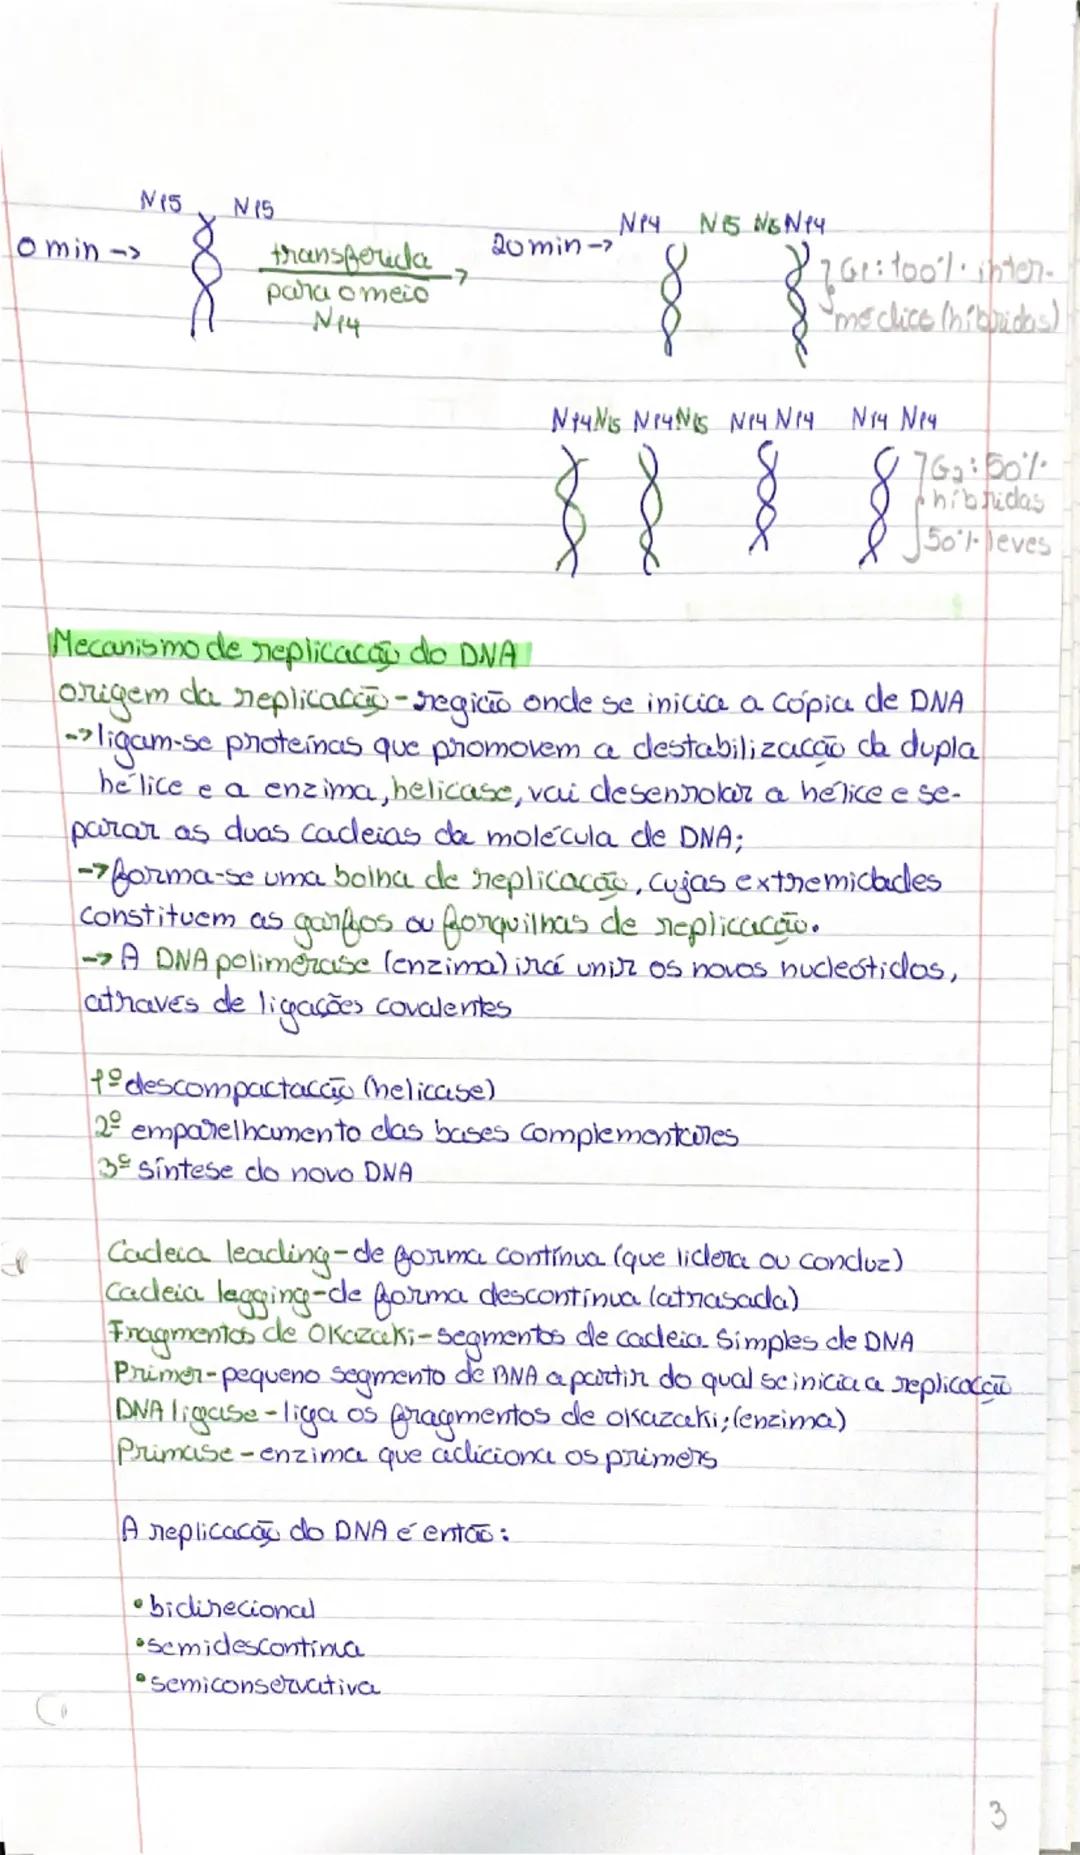 N15 N15
0 min -> transferida para o meio N14
20 min -> N14 N15 N15 N14
G1: 100% inter-
médias (híbridas)
N14 N15 N14 N15 N14 N14 N14 N14
G2: 50%
híbridas
50% leves
Mecanismo de replicação do DNA
origem da replicação - região onde se inicia a cópia de DNA
-> ligam-se proteínas que promovem a destabilização da dupla
hélice e a enzima, helicase, vai desenrolar a hélice e se-
parar as duas cadeias da molécula de DNA;
-> forma-se uma bolha de replicação, cujas extremidades
constituem as garfos ou forquilhas de replicação.
-> A DNA polimerase (enzima) irá unir os novos nucleótidos,
através de ligações covalentes
1º descompactação (helicase)
2º emparelhamento das bases complementares
3º síntese do novo DNA
Cadeia leading - de forma contínua (que lidera ou conduz)
Cadeia legging - de forma descontínua (atrasada)
Fragmentos de Okazaki - segmentos de cadeia simples de DNA
Primer - pequeno segmento de RNA a partir do qual se inicia a replicação
DNA ligase - liga os fragmentos de okazaki; (enzima)
Primase - enzima que adiciona os primers
A replicação do DNA é então:
• bidirecional
• semidescontínua
• semiconservativa
3